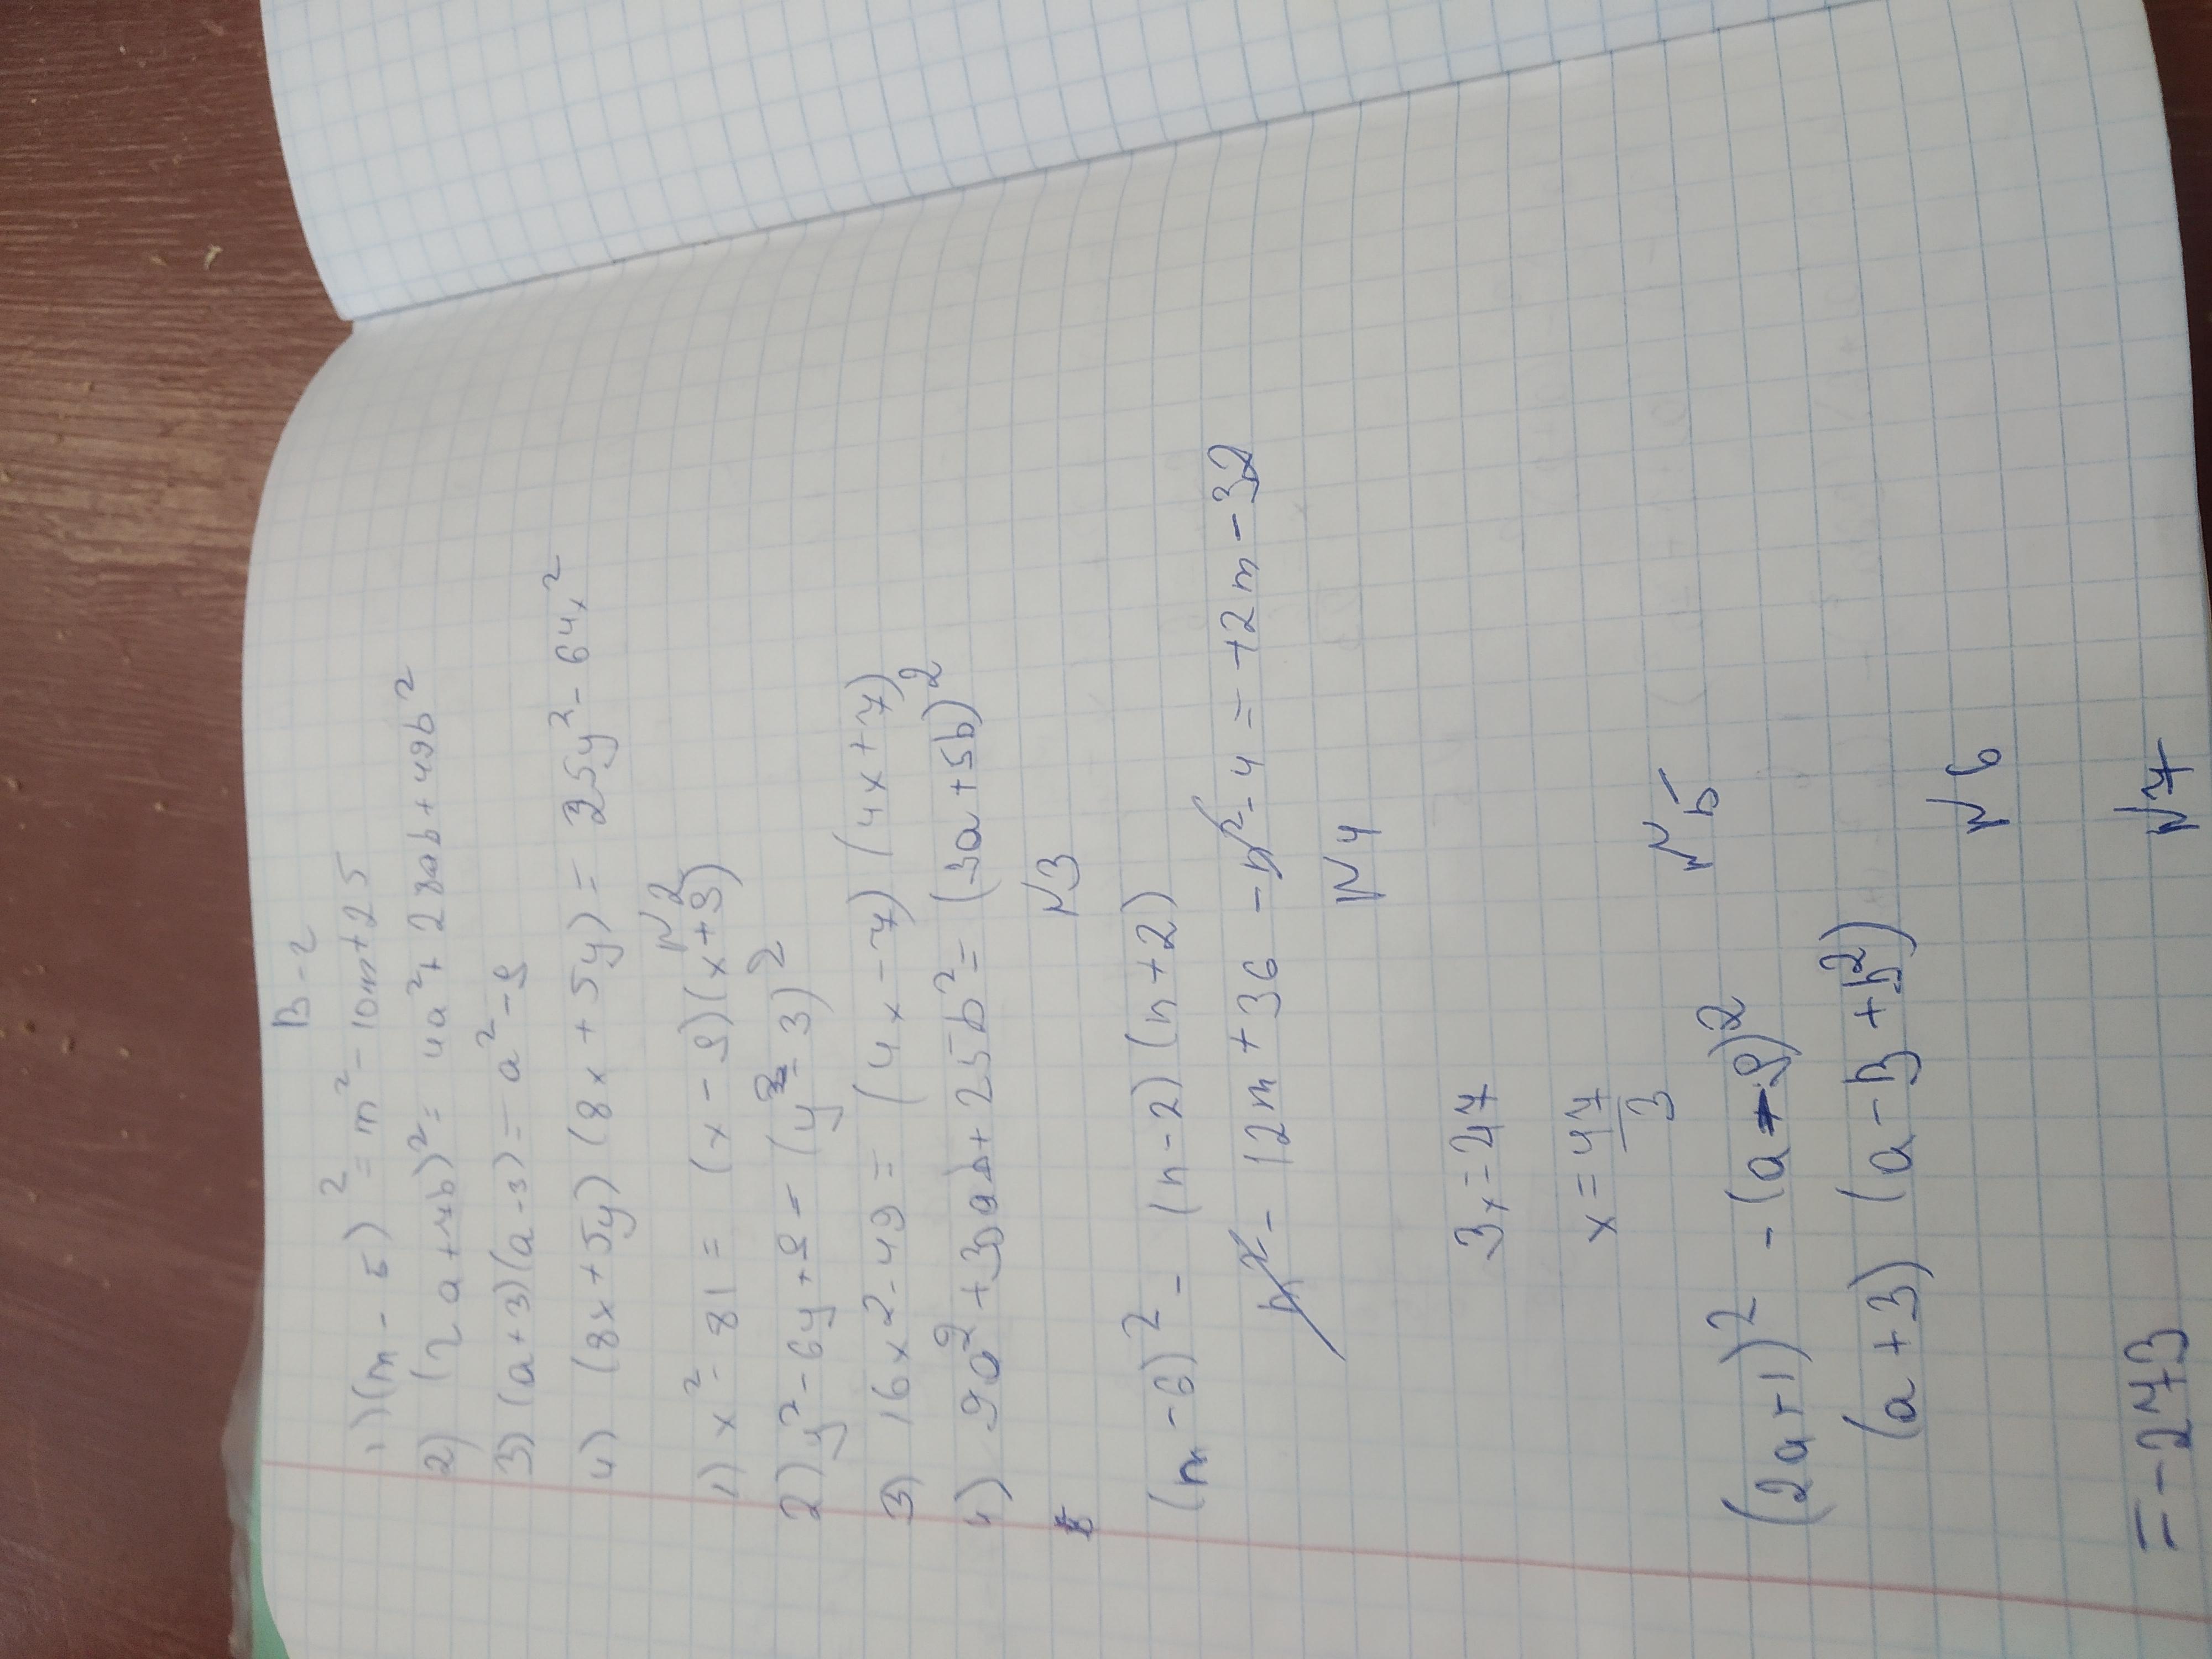 В-2
1) (m - 5)² = m² - 10m + 25
2) (2a + 7b)² = 4a² + 28ab + 49b²
3) (a + 3)(a - 3) = a² - 9
4) (8x + 5y)(8x + 5y) = 25y² - 64x²
№2
1) x² - 81 = (x - 9)(x + 9)
2) y² - 6y + 9 = (y - 3)²
3) 16x2 - 49 = (4x - 7)(4x + 7)
4) 9a² + 30ab + 25b² = (3a + 5b)²
№3
(n - 6)² - (n - 2)(n + 2)
n² - 12n + 36 - n² - 4 = +2m - 32
№4
3x = 47
x = 47/3
№5
(2a + 1)² - (a - 9)²
(a + 3)(a - b + b²)
№6
№7
= -2743